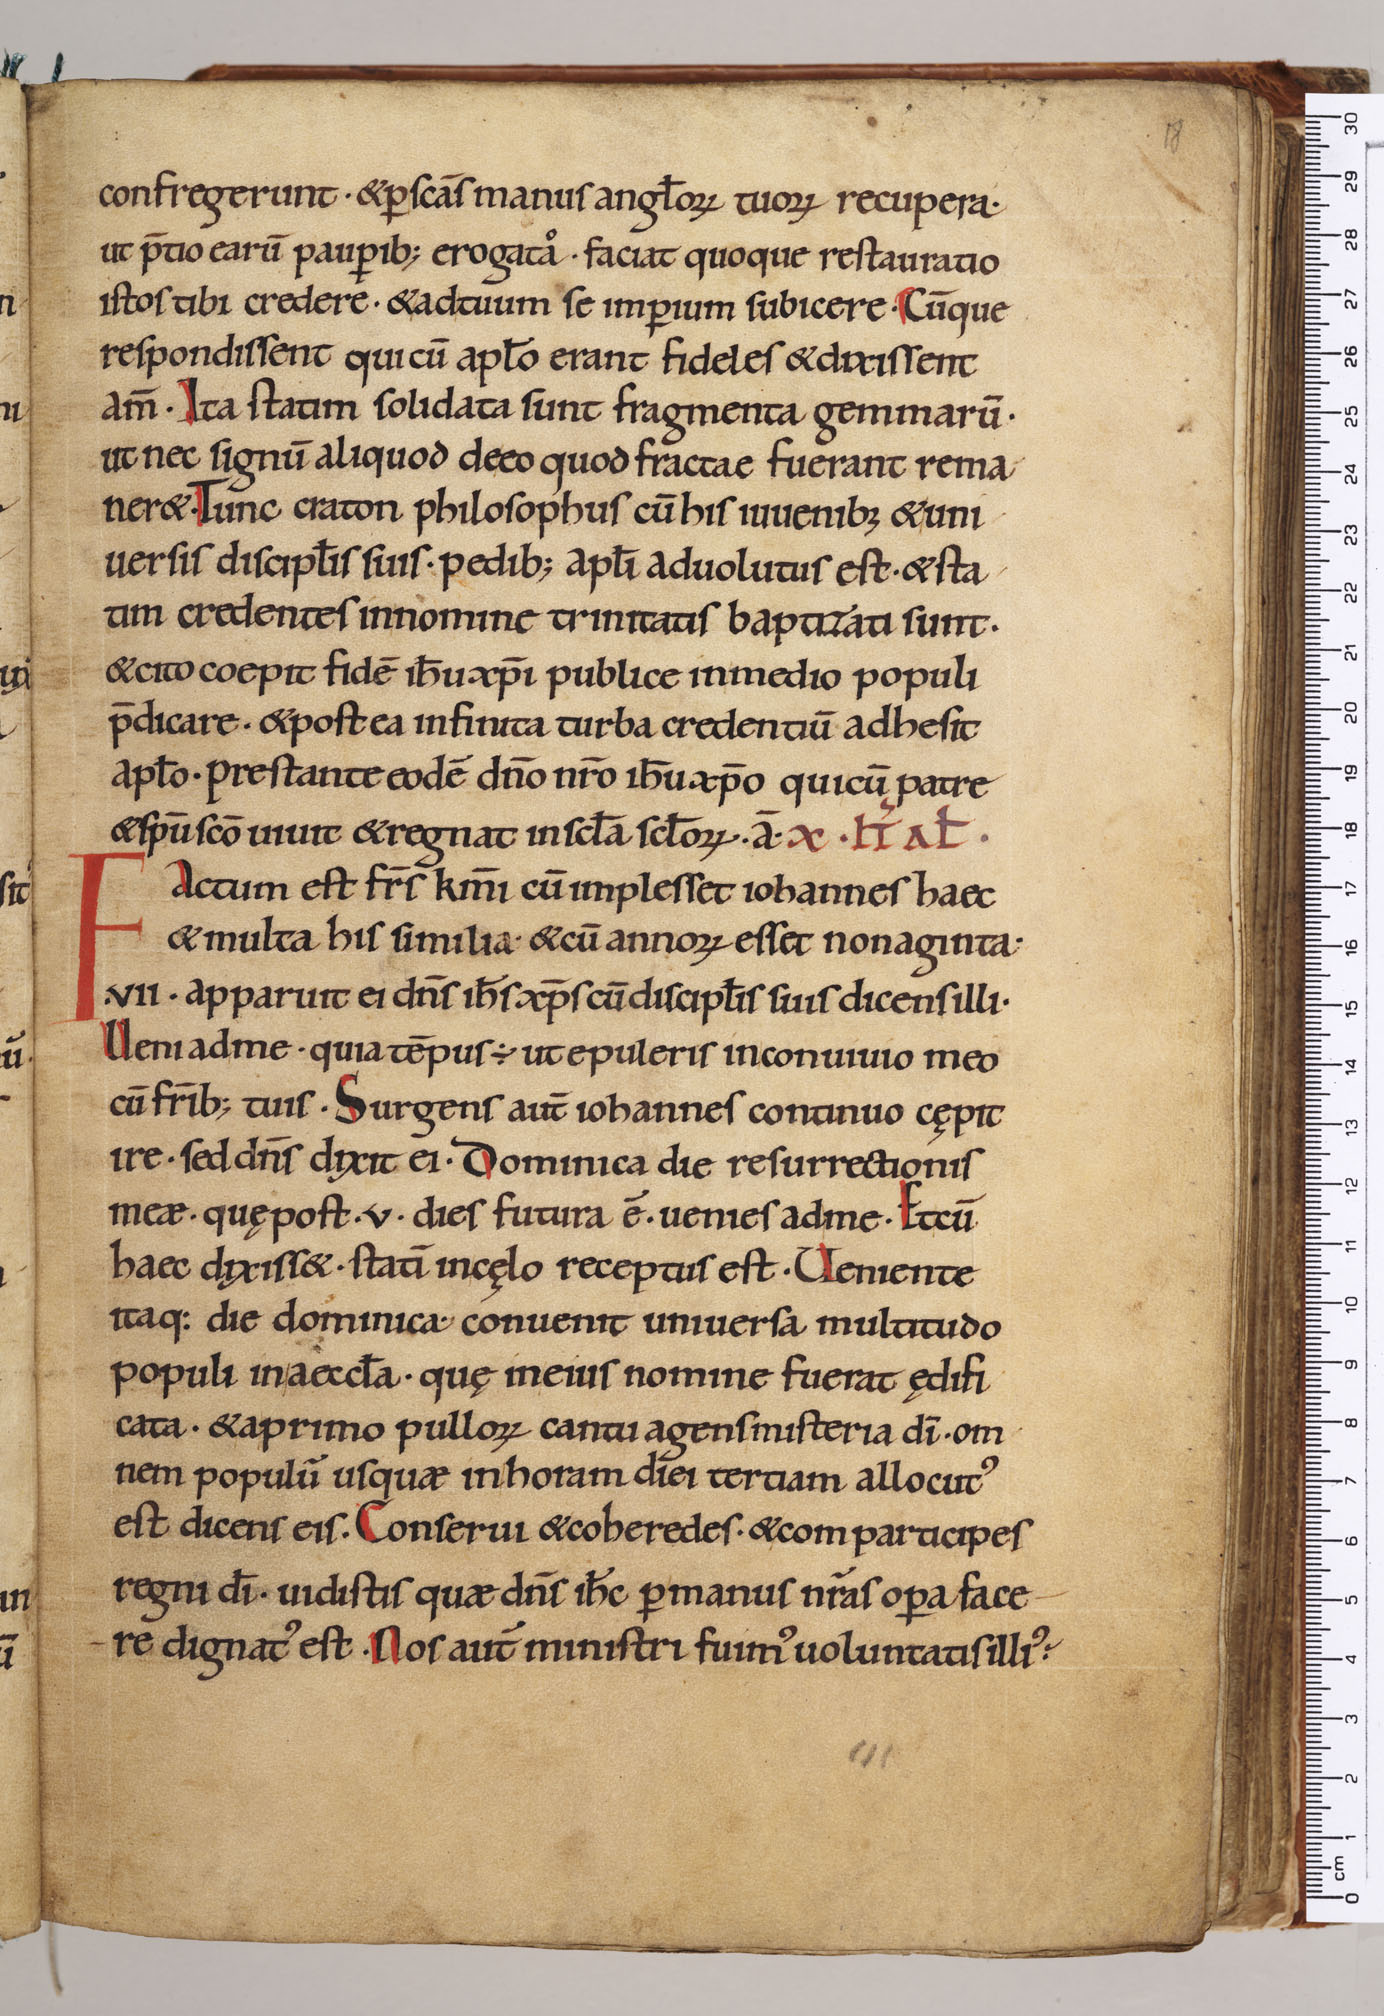 18
confregerunt · & p̱ scās manus angłoꝝ tuoꝝ recupera ·
ut p̄tio earū pauꝑib; erogatᷣ · faciat quoque restauratio
istos tibi credere · & ad tuum se imꝑium subicere · Cūque
respondissent qui cū apło erant fideles & dixissent
am̄ · Ita statim solidata sunt fragmenta gemmarū ·
ut nec signū aliquod de eo quod fractae fuerant rema
ner& · Tunc craton philosophus cū his iuuenibꝫ & uni
uersis discipłis suis · pedib; apłi aduolutus est · & sta
tim credentes in nomine trinitatis baptizati sunt ·
& cito coepit fidē ih̄u xp̄i publice in medio populi
p̄dicare · & postea infinita turba credentiū adhesit
apło · prestante eodē dn̄o nr̄o ih̄u xp̄o qui cū patre
& sp̄u scō uiuit & regnat in scła scłoꝝ · ā ·
FActum est fr̄s km̄i cū implesset iohannes haec
& multa his similia · & cū annoꝝ esset nonaginta ·
·VII · apparuit ei dn̄s ih̄s xp̄s cū discipłis suis dicens illi ·
Ueni ad me · quia tēpus ÷ ut epuleris in conuiuio meo
cū fr̄ib; tuis · Surgens aut̄ iohannes continuo cępit
ire · sed dn̄s dyxit ei · Dominica die resurrectionis
meæ · quę post · v · dies futura ē · uenies ad me · Et cū
haec dyxiss& · statī in cęlo receptus est · Ueniente
itaq: die dominica · conuenit uniuersa multitudo
populi in aeccła · quę in eius nomine fuerat ędifi
cata · & a primo pulloꝝ cantu agens misteria dī · om
nem populū usquæ in horam diei tertiam allocut᾽
est dicens eis · Conserui & coheredes · & comparticipes
regni dī · uidistis quæ dn̄s ih̄c ꝑ manus nr̄as oꝑa face
re dignat᾽ est · Nos aut̄ ministri fuim᾽ uoluntatis illi᾽ ·